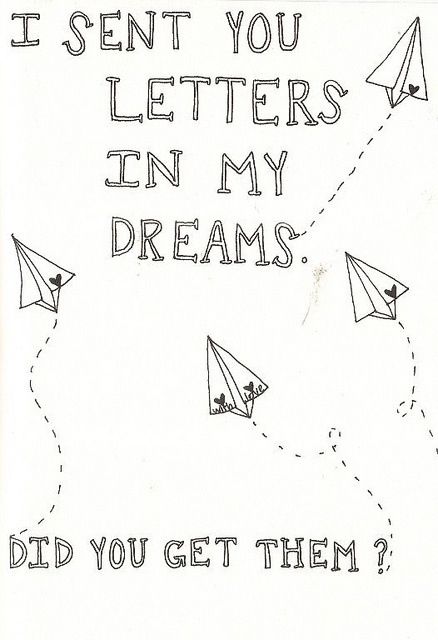 I SENT YOU
LETTERS
IN MY
DREAMS.
with love
DID YOU GET THEM?